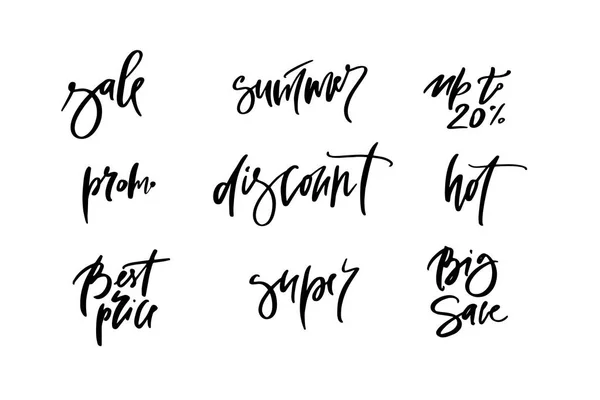 sale
summer
up to
20%
promo
discount
hot
Best
price
super
Big
Sale